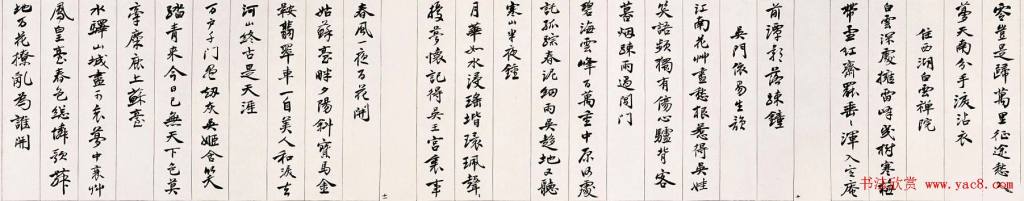 零豈是歸萬里征途愁入
夢天南分手淚沾衣
住西湖白雲禪院
白雲深處擁雷峰幾樹寒梅
帶雪紅齋罷垂垂渾入定庵
前潭影落疎鐘
吳門依易生韻
江南花艸盡愁根惹得吳娃
笑語頻獨有傷心驢背客
暮烟疎雨過閶門
碧海雲峰百萬重中原何處
託孤踪春泥細雨吳趨地又聽
寒山半夜鐘
月華如水浸瑤堦環珮聲
擾夢懷記得吳王宮裏事
春風一夜百花開
姑蘇臺畔夕陽斜寶馬金
鞍翡翠車一自美人和淚去
河山終古是天涯
万戶千門盡劫灰吳姬含笑
踏青來今日已無天下色莫
牽麋鹿上蘇臺
水驛山城盡可哀夢中衰艸
鳳皇臺春色總憐歌舞
地万花撩亂為誰開
十
十一
书法欣赏 www.yac8.com